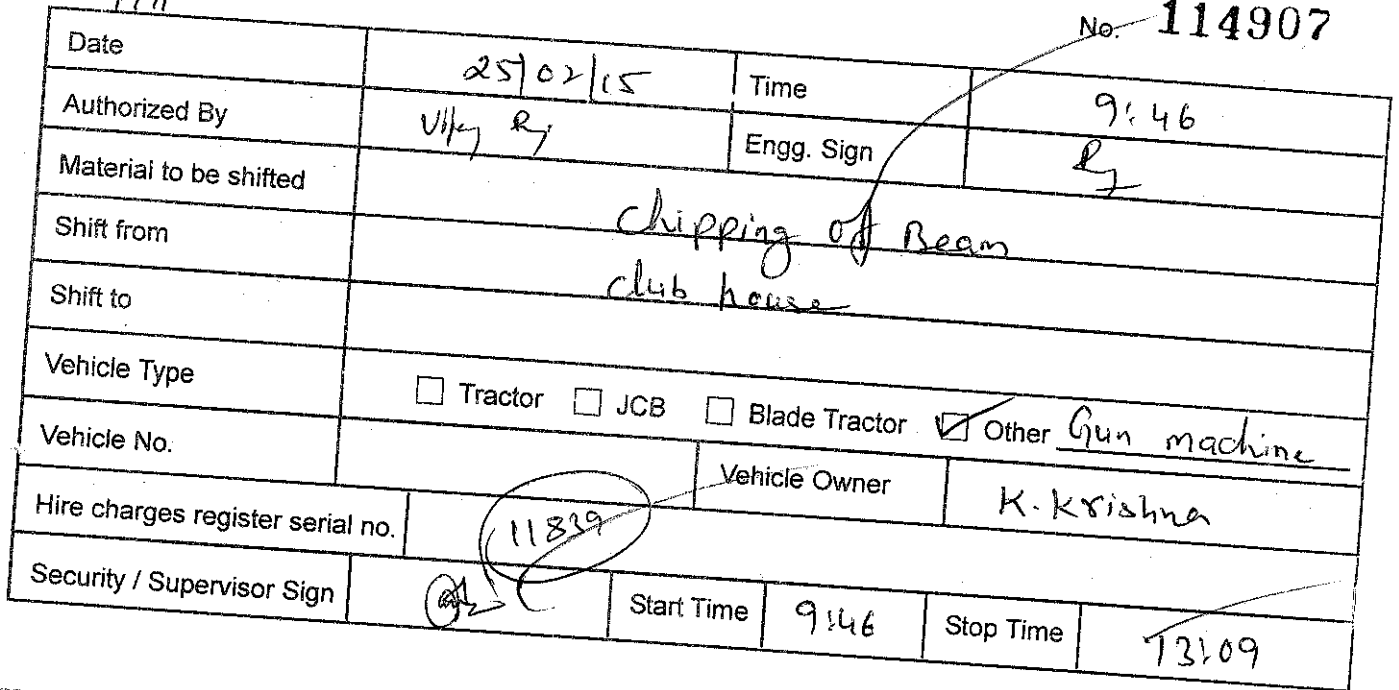 No. 114907
Date 25/02/15 Time 9:46
Authorized By Vijay Engg. Sign
Material to be shifted Chipping of Beam
Shift from club house
Shift to
Vehicle Type Tractor JCB Blade Tractor Other Gun machine
Vehicle No. Vehicle Owner K. Krishna
Hire charges register serial no. 11839
Security / Supervisor Sign Start Time 9:46 Stop Time 13:09